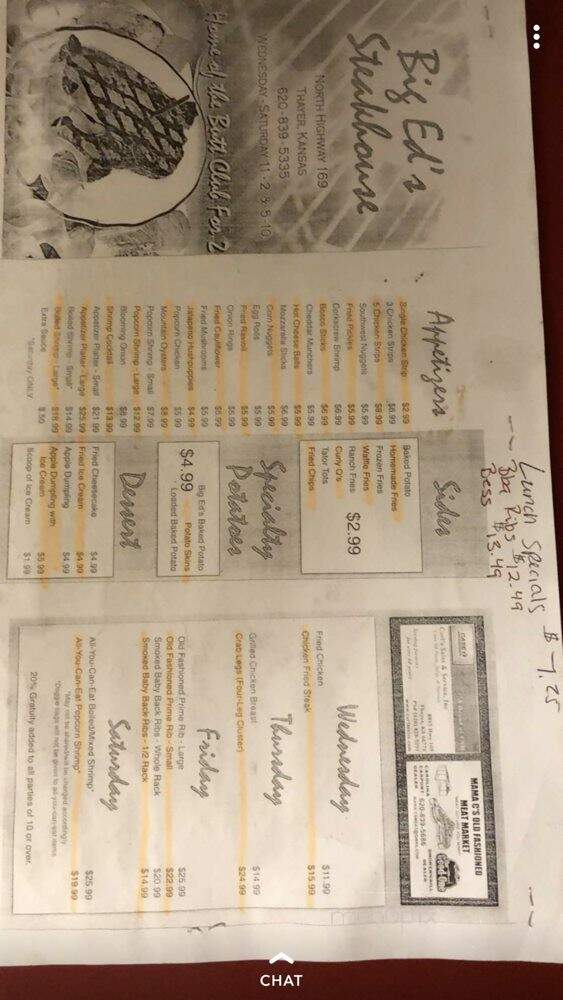 Lunch Specials $7.25
Bbq Ribs $12.49
Bess 13.49
Big Ed's
Steakhouse
NORTH HIGHWAY 169
THAYER, KANSAS
620-839-5335
WEDNESDAY-SATURDAY 11-2 & 5-10
Home of the Butt Club For 2
Appetizers
Single Chicken Strip $2.99
3 Chicken Strips $6.99
5 Chicken Strips $8.99
Southwest Nuggets $5.99
Fried Pickles $5.99
Coconut Shrimp $6.99
Bosco Sticks $6.99
Cheddar Munchers $5.99
Hot Cheese Balls $5.99
Mozzarella Sticks $6.99
Corn Nuggets $5.99
Egg Rolls $5.99
Fried Ravioli $5.99
Onion Rings $5.99
Fried Cauliflower $5.99
Fried Mushrooms $5.99
Jalapeno Hushpuppies $4.99
Popcorn Chicken $5.99
Mountain Oysters $8.99
Popcorn Shrimp - Small $7.99
Popcorn Shrimp - Large $12.99
Blooming Onion $8.99
Shrimp Cocktail
Appetizer Platter - Small $21.99
Appetizer Platter - Large $25.99
Boiled Shrimp - Small* $14.99
Boiled Shrimp - Large* $19.99
Extra Sauce $.50
*Saturday ONLY
Sides
Baked Potato
Homemade Fries
Frozen Fries
Waffle Fries
Ranch Fries $2.99
Curly Q's
Tator Tots
Fried Chips
Specialty
Potatoes
Big Ed's Baked Potato
$4.99 Potato Skins
Loaded Baked Potato
Dessert
Fried Cheesecake $4.99
Fried Ice Cream $4.99
Apple Dumpling $4.99
Apple Dumpling with
Ice Cream $5.99
Scoop of Ice Cream $1.99
MAMA C'S OLD FASHIONED
MEAT MARKET
CAROLINA
CARPORT 620-839-5686
DEALER
Wednesday
Fried Chicken $11.99
Chicken Fried Steak $15.99
Thursday
Grilled Chicken Breast $14.99
Crab Legs (Four-Leg Cluster) $24.99
Friday
Old Fashioned Prime Rib - Large $25.99
Old Fashioned Prime Rib - Small $22.99
Smoked Baby Back Ribs - Whole Rack $20.99
Smoked Baby Back Ribs - 1/2 Rack $14.99
Saturday
All-You-Can-Eat Boiled/Mixed Shrimp* $25.99
*May not be shared/will be changed accordingly
All-You-Can-Eat Popcorn Shrimp* $19.99
*Doggie bags will not be given to all-you-can-eat items
20% Gratuity added to all parties of 10 or over.
CHAT